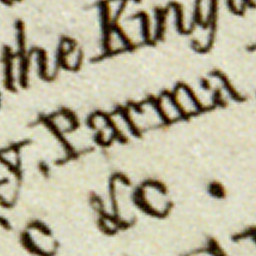 the King
y, Parma
c &c.